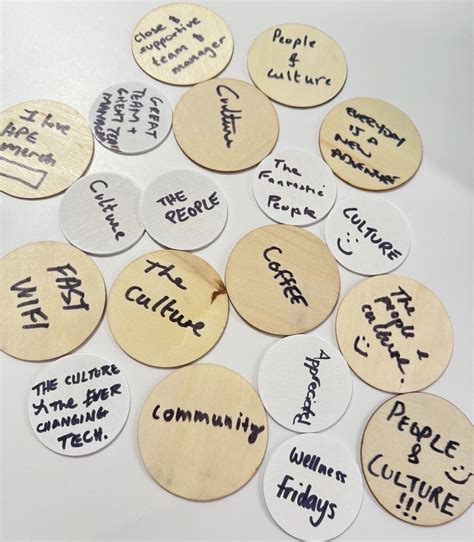 Close &
supportive
team &
manager
People
&
Culture
GREAT
TEAM +
GREAT TEAM
MANAGER
Culture
EVERYDAY
IS A
NEW
ADVENTURE
I love
APE
merch
Culture
THE
PEOPLE
The
Fantastic
People
CULTURE
FAST
WIKI
The
Culture
COFFEE
The
people &
culture.
THE CULTURE
& The EVER
CHANGING
TECH.
Community
Appreciated
PEOPLE
&
CULTURE
!!!
Wellness
fridays